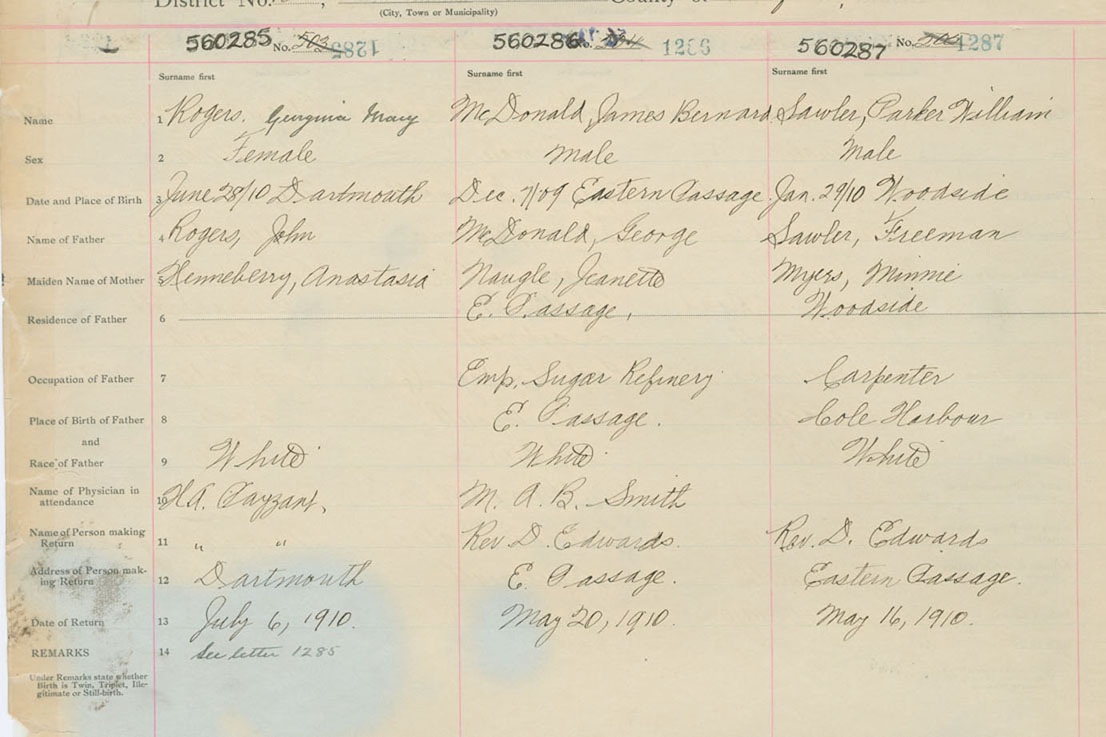 District No. , County of
(City, Town or Municipality)
560285 No. 503 1285 560286 No. 1286 560287 No. 1287
Surname first Surname first Surname first
Name 1 Rogers, Georgina Mary McDonald, James Bernard Sawler, Parker William
Sex 2 Female Male Male
Date and Place of Birth 3 June 28/10 Dartmouth Dec. 7/09 Eastern Passage Jan. 29/10 Woodside
Name of Father 4 Rogers, John McDonald, George Sawler, Freeman
Maiden Name of Mother 5 Henneberry, Anastasia Naugle, Jeanette Myers, Minnie
Residence of Father 6 E. Passage, Woodside
Occupation of Father 7 Emp. Sugar Refinery Carpenter
Place of Birth of Father 8 E. Passage. Cole Harbour
and
Race of Father 9 White White White
Name of Physician in
attendance 10 H.A. Payzant, M. A. B. Smith
Name of Person making
Return 11 " " Rev D. Edwards. Rev. D. Edwards
Address of Person mak-
ing Return 12 Dartmouth E. Passage. Eastern Passage.
Date of Return 13 July 6, 1910. May 20, 1910. May 16, 1910.
REMARKS 14 See letter 1285
Under Remarks state whether
Birth is Twin, Triplet, Ille-
gitimate or Still-birth.